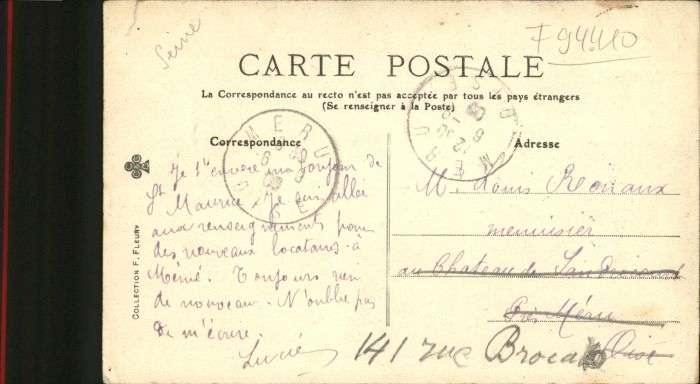 Seine
F 94410
CARTE POSTALE
La Correspondance au recto n'est pas acceptée par tous les pays étrangers
(Se renseigner à la Poste)
Correspondance
Je t'envoie un bonjour de
St Maurice. Je suis allée
aux renseignements pour
des nouveaux locataires à
Toujours rien
de nouveau. N'oublie pas
de m'écrire.
Lucie
COLLECTION F. FLEURY
Adresse
M. Louis
menuisier
au Chateau de
Près Méru
Oise
141 rue Broca